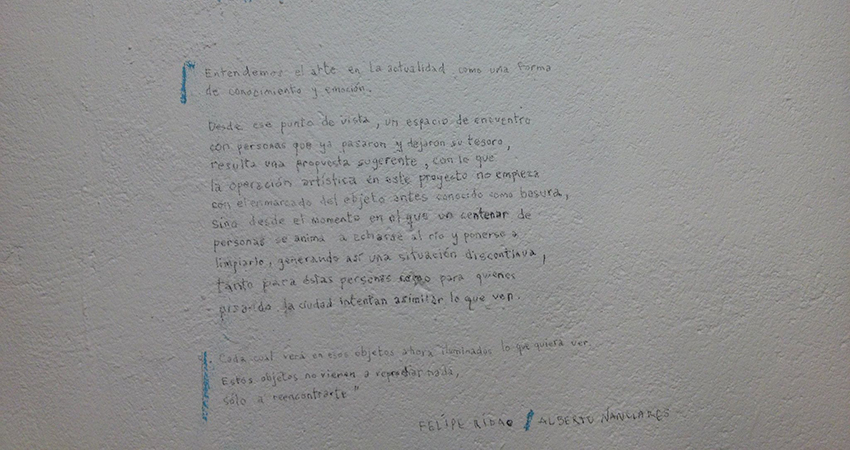 "Entendemos el arte en la actualidad como una forma
de conocimiento y emoción.
Desde ese punto de vista, un espacio de encuentro
con personas que ya pasaron y dejaron su tesoro,
resulta una propuesta sugerente, con lo que
la operación artística en este proyecto no empieza
con el enmarcado del objeto antes conocido como basura,
sino desde el momento en el que un centenar de
personas se anima a echarse al río y ponerse a
limpiarlo, generando así una situación discontinua,
tanto para éstas personas como para quienes
pisando la ciudad intentan asimilar lo que ven.
Cada cual verá en esos objetos ahora iluminados lo que quiera ver.
Estos objetos no vienen a reprochar nada,
sólo a reencontrarte"
FELIPE / ALBERTO NANCLARES